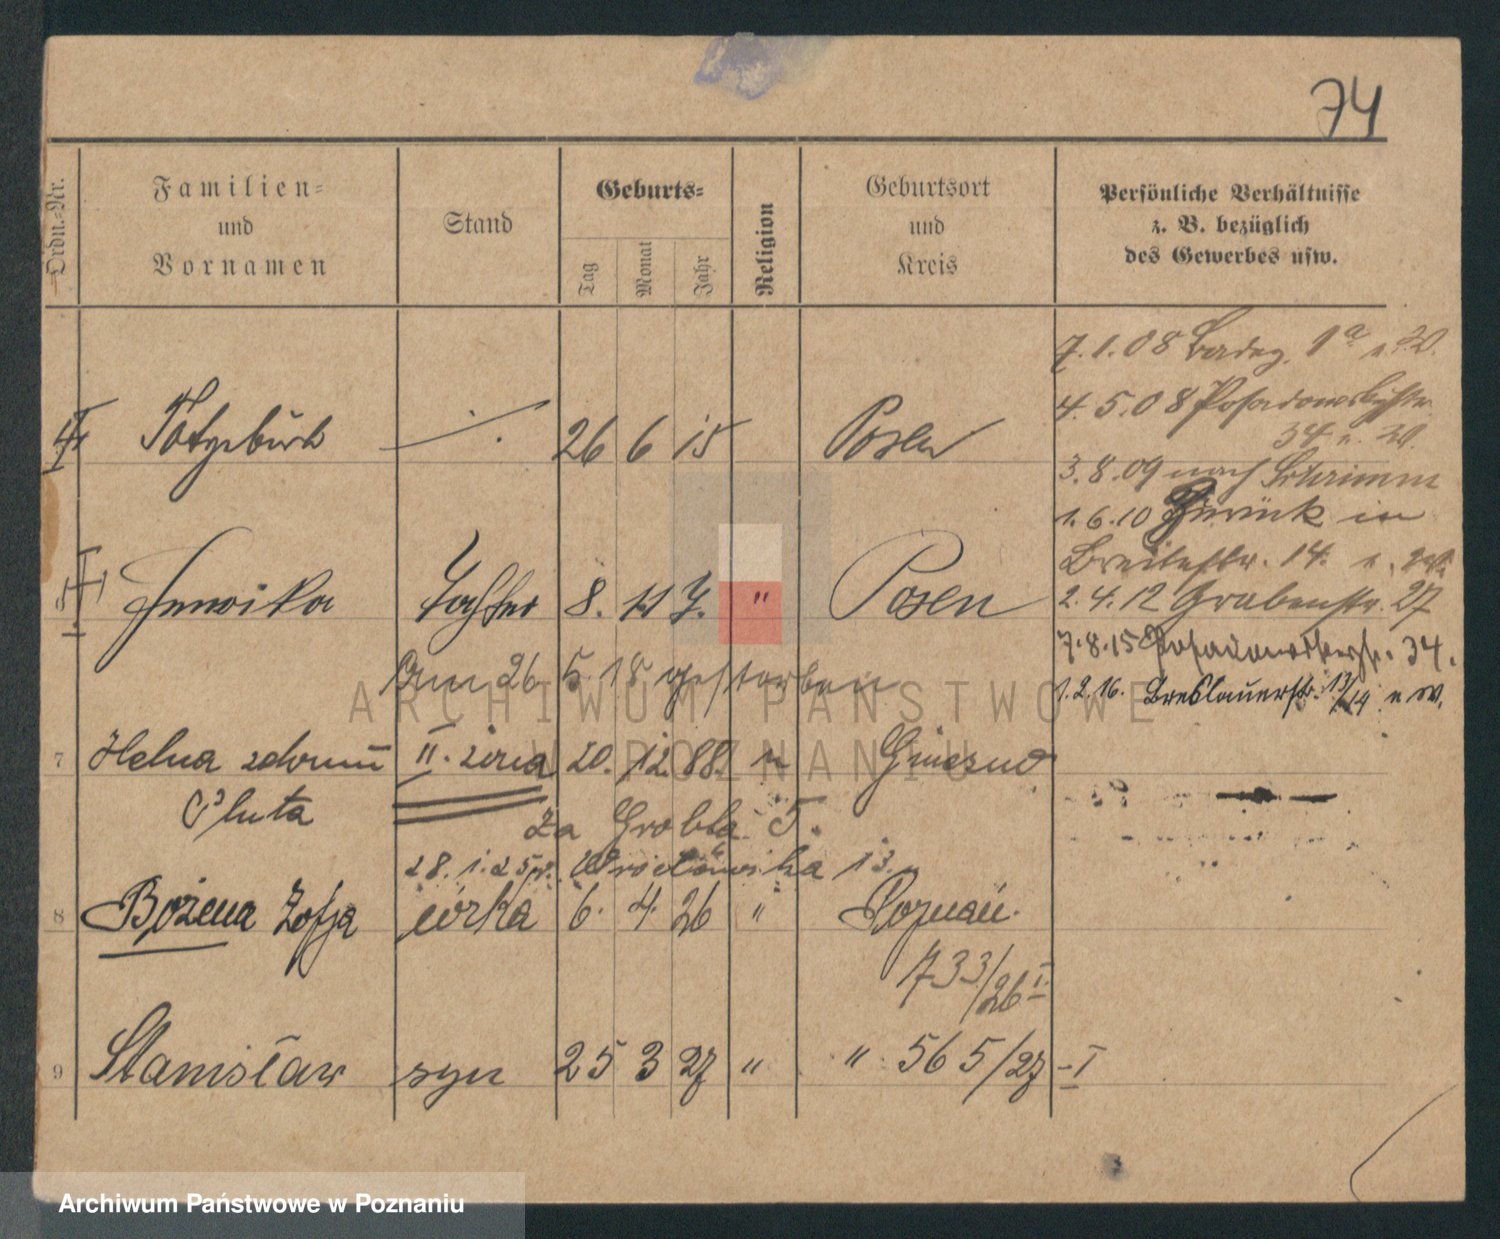 74
Ordn.-Nr.
Familien-
und
Vornamen
Stand
Geburts-
Tag
Monat
Jahr
Religion
Geburtsort
und
Kreis
Persönliche Verhältnisse
z. B. bezüglich
des Gewerbes usw.
7.1.08 1a
4.5.08 Posadowskystr.
34
3.8.09 nach Schrimm
1.6.10 Zurück in
Breitestr. 14.
2.4.12 Grabenstr. 27
7.8.15 Posadowskystr. 34.
1.2.16. Breslauerstr. 13/14
Totgeburt 26 6 15 Posen
Tochter 8. 11 7. " Posen
Am 26. 5. 18 gestorben
7 Helena z domu II. żona 20. 12. 88. " Gniezno
Pluta
Za Groblą 5.
28.1.25 Wrocławska 13.
8 Bożena Zofja córka 6. 4. 26 " Poznań.
733/26 I
9 Stanisław syn 25 3 27 " " 565/27 - I
ARCHIWUM PAŃSTWOWE
W POZNANIU
Archiwum Państwowe w Poznaniu